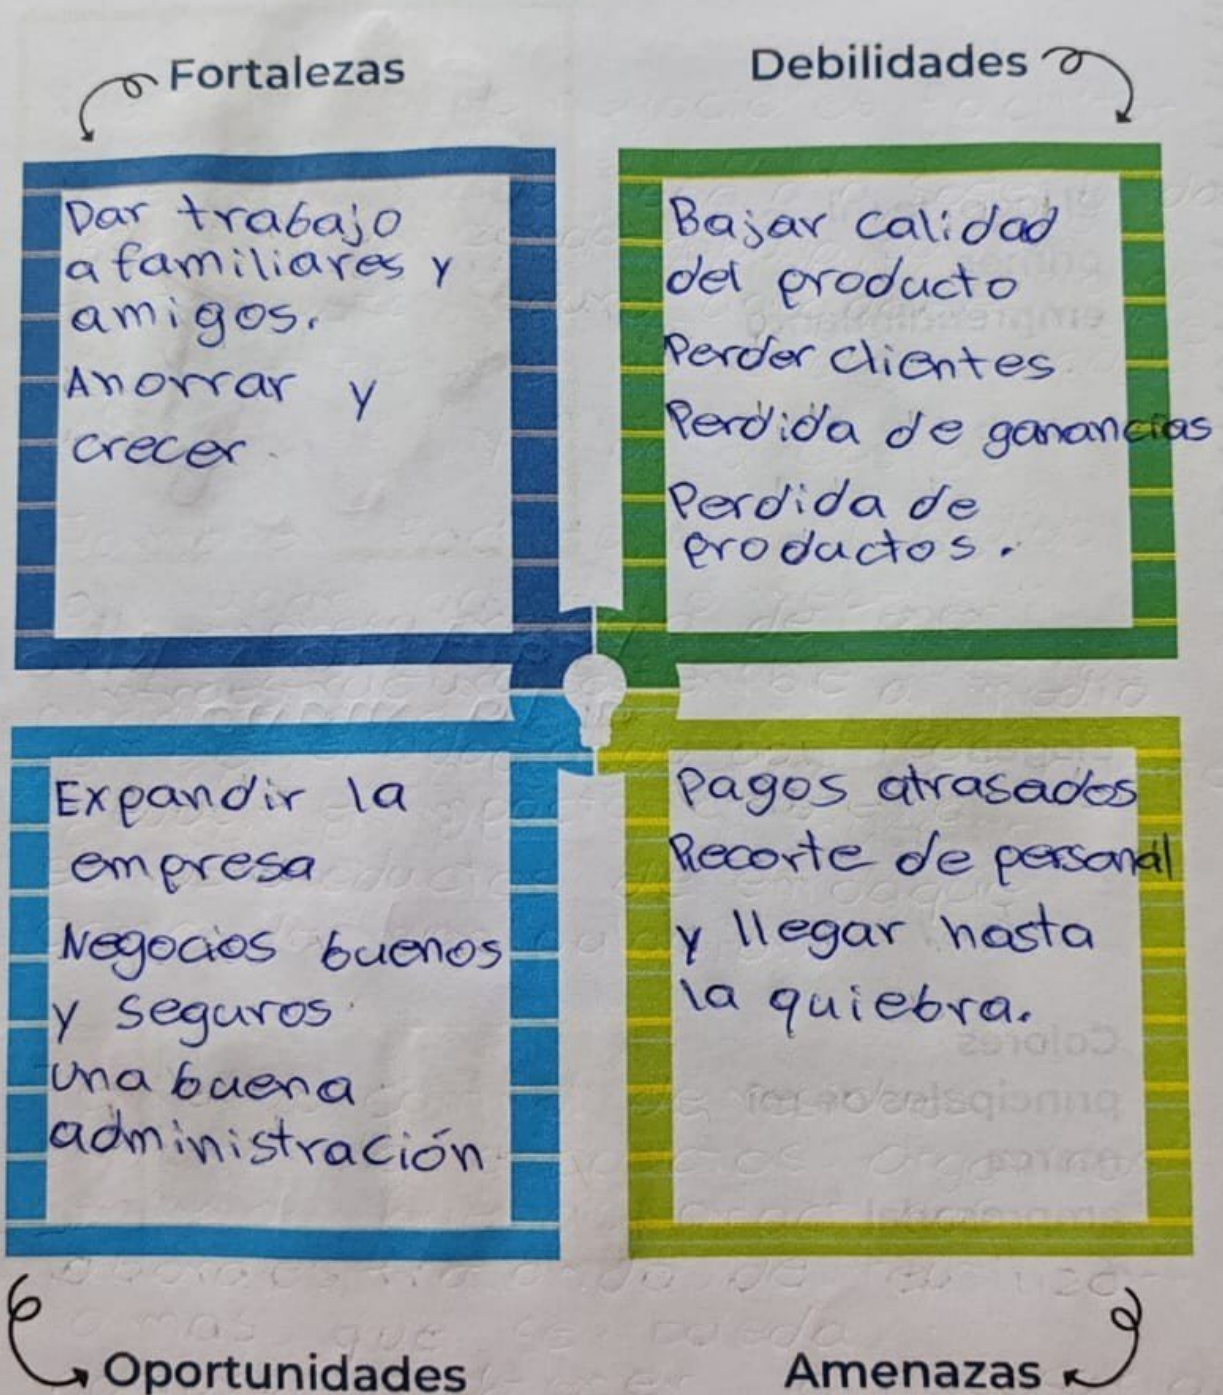 Fortalezas
Dar trabajo
a familiares y
amigos.
Ahorrar y
crecer
Debilidades
Bajar calidad
del producto
Perder clientes
Perdida de ganancias
Perdida de
productos.
Expandir la
empresa
Negocios buenos
y seguros
una buena
administración
Oportunidades
Pagos atrasados
Recorte de personal
y llegar hasta
la quiebra.
Amenazas